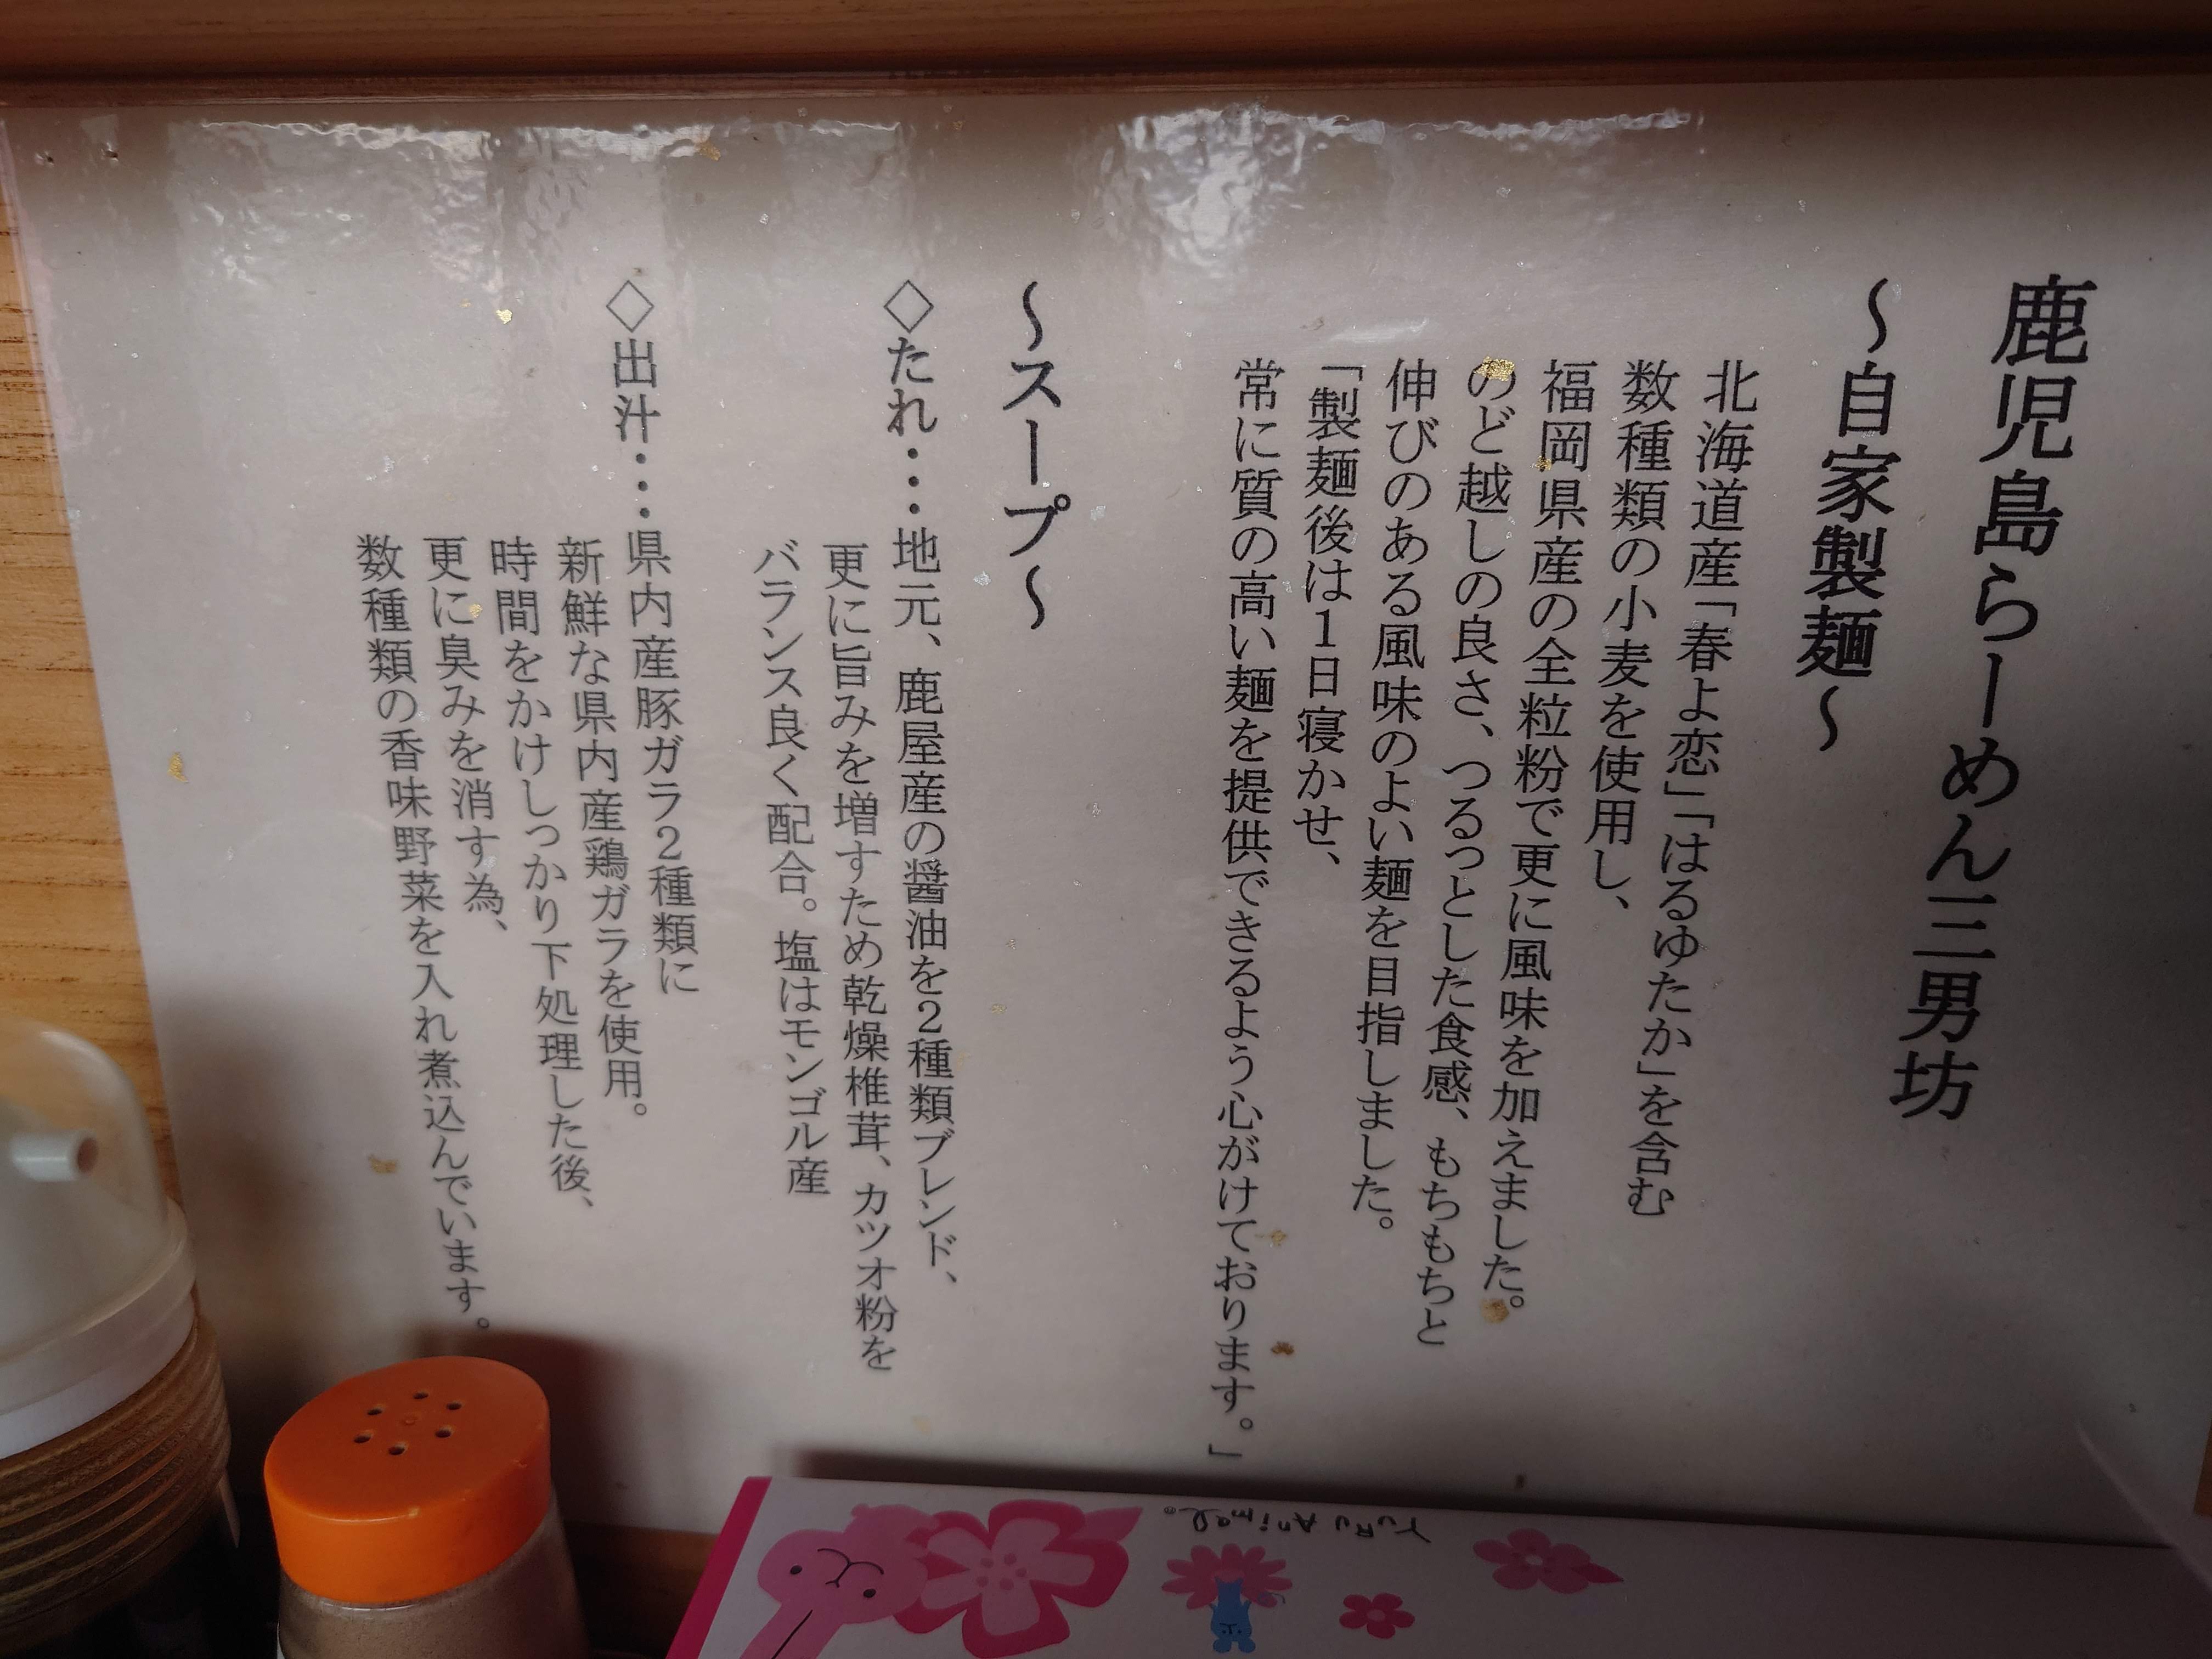 鹿児島らーめん三男坊
～自家製麺～
北海道産「春よ恋」「はるゆたか」を含む
数種類の小麦を使用し、
福岡県産の全粒粉で更に風味を加えました。
のど越しの良さ、つるっとした食感、もちもちと
伸びのある風味のよい麺を目指しました。
「製麺後は1日寝かせ、
常に質の高い麺を提供できるよう心がけております。」
～スープ～
◇たれ・・・地元、鹿屋産の醤油を2種類ブレンド、
更に旨みを増すため乾燥椎茸、カツオ粉を
バランス良く配合。塩はモンゴル産
◇出汁・・・県内産豚ガラ2種類に
新鮮な県内産鶏ガラを使用。
時間をかけしっかり下処理した後、
更に臭みを消す為、
数種類の香味野菜を入れ煮込んでいます。
YuRu Animal®